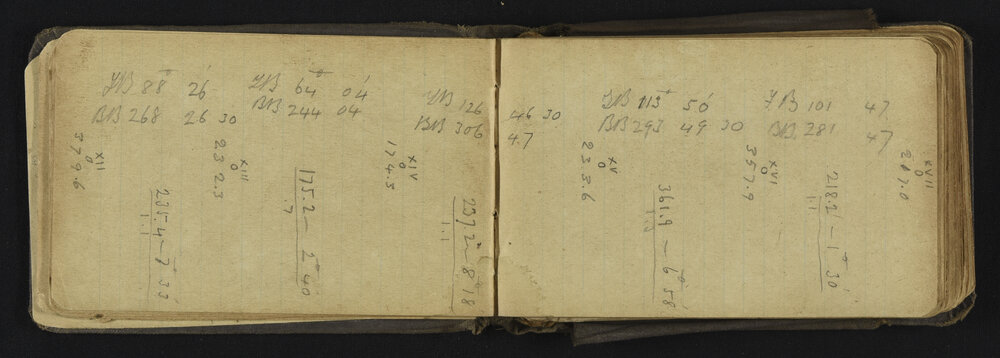 FB 88° 26'
BB 268 26 30
FB 64° 04'
BB 244 04
FB 126 46 30
BB 306 47
FB 113° 50'
BB 293 49 30
FB 101 47
BB 281 47
XII
0
379.6
235.4 - 7° 33'
1.1
XIII
0
232.3
175.2 - 2° 40'
.7
XIV
0
174.5
237.2 - 8° 18'
1.1
XV
0
233.6
361.9 - 6° 58'
XVI
0
357.9
218.2 - 1° 30'
1.1
XVII
0
217.0